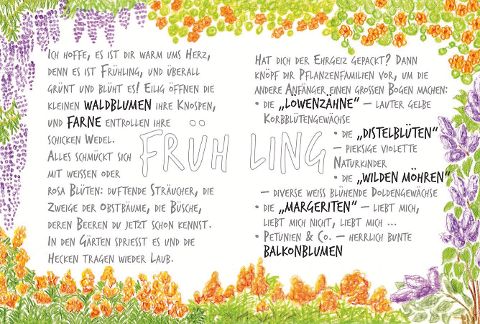 Ich hoffe, es ist dir warm ums Herz,
denn es ist Frühling, und überall
grünt und blüht es! Eilig öffnen die
kleinen Waldblumen ihre Knospen,
und Farne entrollen ihre
schicken Wedel.
Alles schmückt sich
mit weissen oder
rosa Blüten: duftende Sträucher, die
Zweige der Obstbäume, die Büsche,
deren Beeren du jetzt schon kennst.
In den Gärten spriesst es und die
Hecken tragen wieder Laub.
FRÜH LING
Hat dich der Ehrgeiz gepackt? Dann
knöpf dir Pflanzenfamilien vor, um die
andere Anfänger einen grossen Bogen machen:
• die „Löwenzähne“ – lauter gelbe
Korbblütengewächse
• die „Distelblüten“
– pieksige violette
Naturkinder
• die „wilden Möhren“
– diverse weiss blühende Doldengewächse
• die „Margeriten“ – liebt mich,
liebt mich nicht, liebt mich ...
• Petunien & Co. – herrlich bunte
Balkonblumen